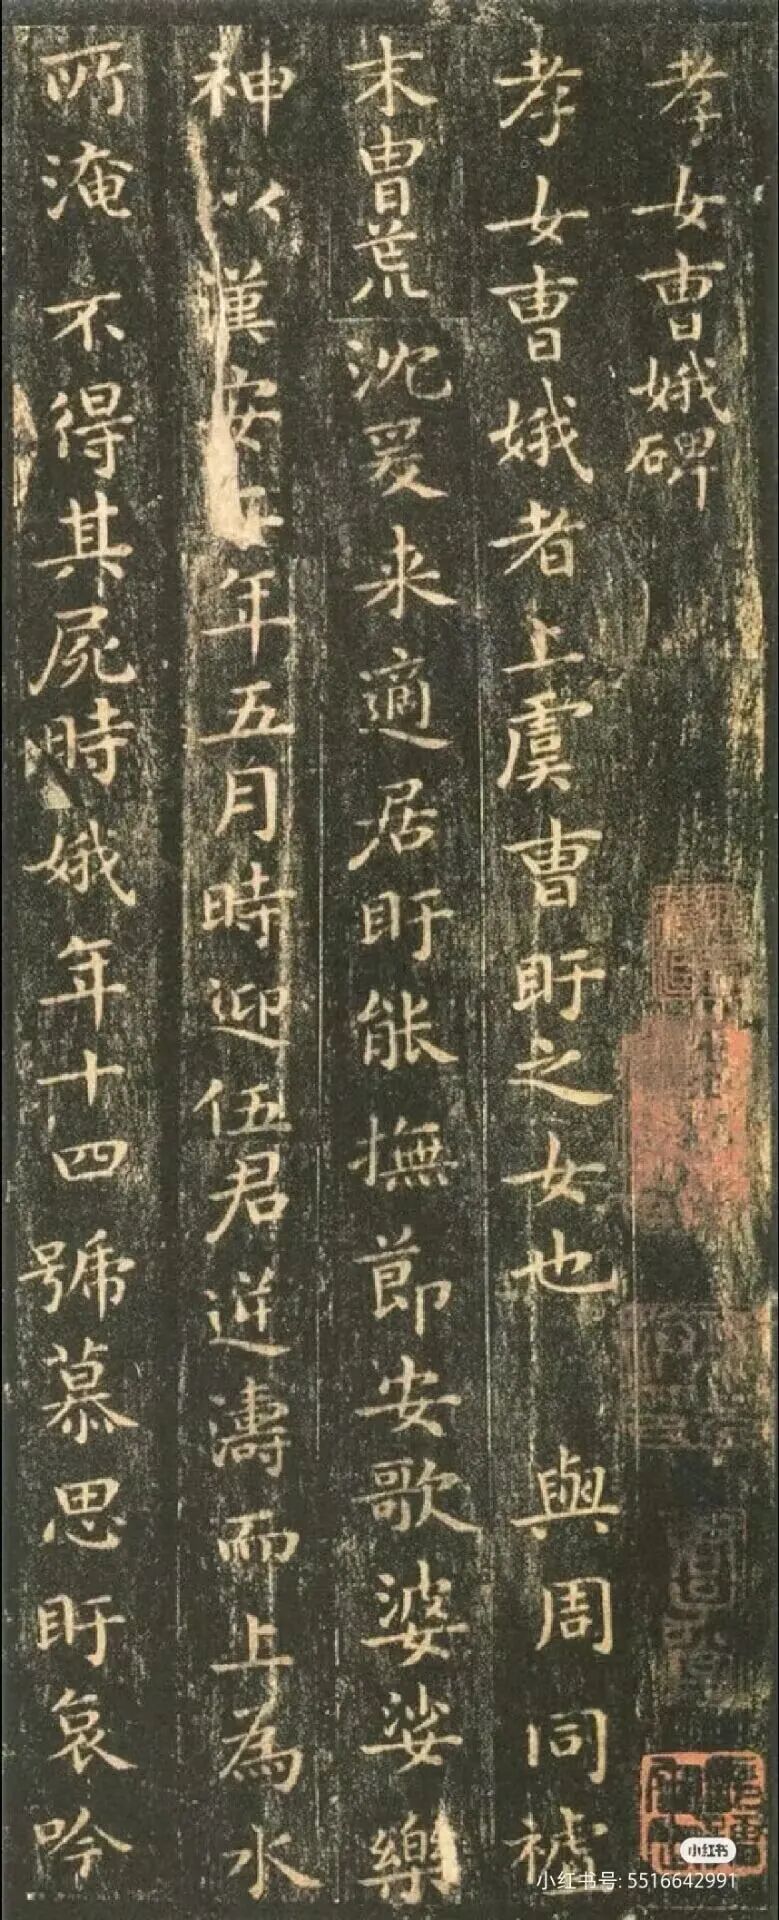 孝女曹娥碑
孝女曹娥者上虞曹盱之女也 與周同
末胄荒沈爰来適居盱能撫節安歌婆娑樂
神以漢安二年五月時迎伍君逆濤而上為水
所淹不得其屍時娥年十四號慕思盱哀吟
小红书
小红书号: 5516642991